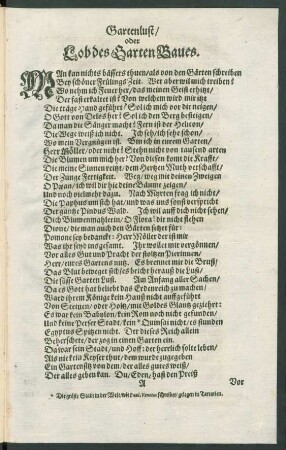 Gartenlust/
oder
Lob des Garten Baues.
MAn kan nichts bässers thuen/als von den Gärten schreiben
Bey schöner Frülings Zeit. Wer aber wil mich treiben?
Wo nehm ich Feuer her/das meinen Geist erhitz/
Der fast erkaltet ist? Von welchem wird mir itz
Die träge Hand geführt/ Sol ich mich vor dir neigen/
O Gott von Delos her! Sol ich den Berg besteigen/
Da man die Sänger macht? Fern ist der Helicon/
Die Wege weiß ich nicht. Ich seh/ich sehe schon/
Wo mein Vergnügen ist. Bin ich in eurem Garten/
Herr Möller/oder nicht? Stehn nicht von tausend arten
Die Blumen um mich her? Von diesen komt die Krafft/
Die meine Sinnen reitzt/dem Hertzen Muth verschafft/
Der Zunge Fertigkeit. Weg/weg mit deinen Zweigen
O Paean/ich wil dir hie deine Bäume zeigen/
Und noch viel mehr dazu. Nach Myrten frag ich nicht/
Die Paphus um sich hat/und was uns sonst verspricht
Der gantze Pindus Wald. Ich wil auff dich nicht sehen/
Dich Blumenwahlerin/O Flora! dir nicht flehen
Dione/die man auch den Gärten setzet für:
Pomone sey bedanckt: Herr Möller der ist mir
Was ihr seyd ins gesamt. Ihr wollet mir vergönnen/
Vor alles Gut und Pracht der stoltzen Pierinnen/
Herr/eures Gartens nutz. Es brennet mir die Brust/
Das Blut beweget sich/es bricht herauß die Lust/
Die süsse Garten Lust. Am Anfang aller Sachen/
Da es Gott hat beliebt das Erdenreich zu machen/
Ward ihrem Könige kein Hauß nicht auffgeführt
Von Steinen/oder Holtz/mit Goldes Glantz geziehrt:
Es war kein Babulon/kein Rom noch nicht gefunden/
Und keine Perser Stadt/kein * Quinsai nicht/es stunden
Egyptus Spitzen nicht. Der dieses Reich allein
Beherschete/der zog in einen Garten ein.
Da war sein Stadt/und Hoff: der herrlich solte leben/
Als nie kein Keyser thut/dem wurde zugegeben
Ein Gartensitz von dem/der alles gutes weiß/
Der alles geben kan. Du/Eden/hast den Preiß
A Vor
* Die gröste Stadt in der Welt/wie Paul. Venetus schreibet/gelegen in Tartarien.